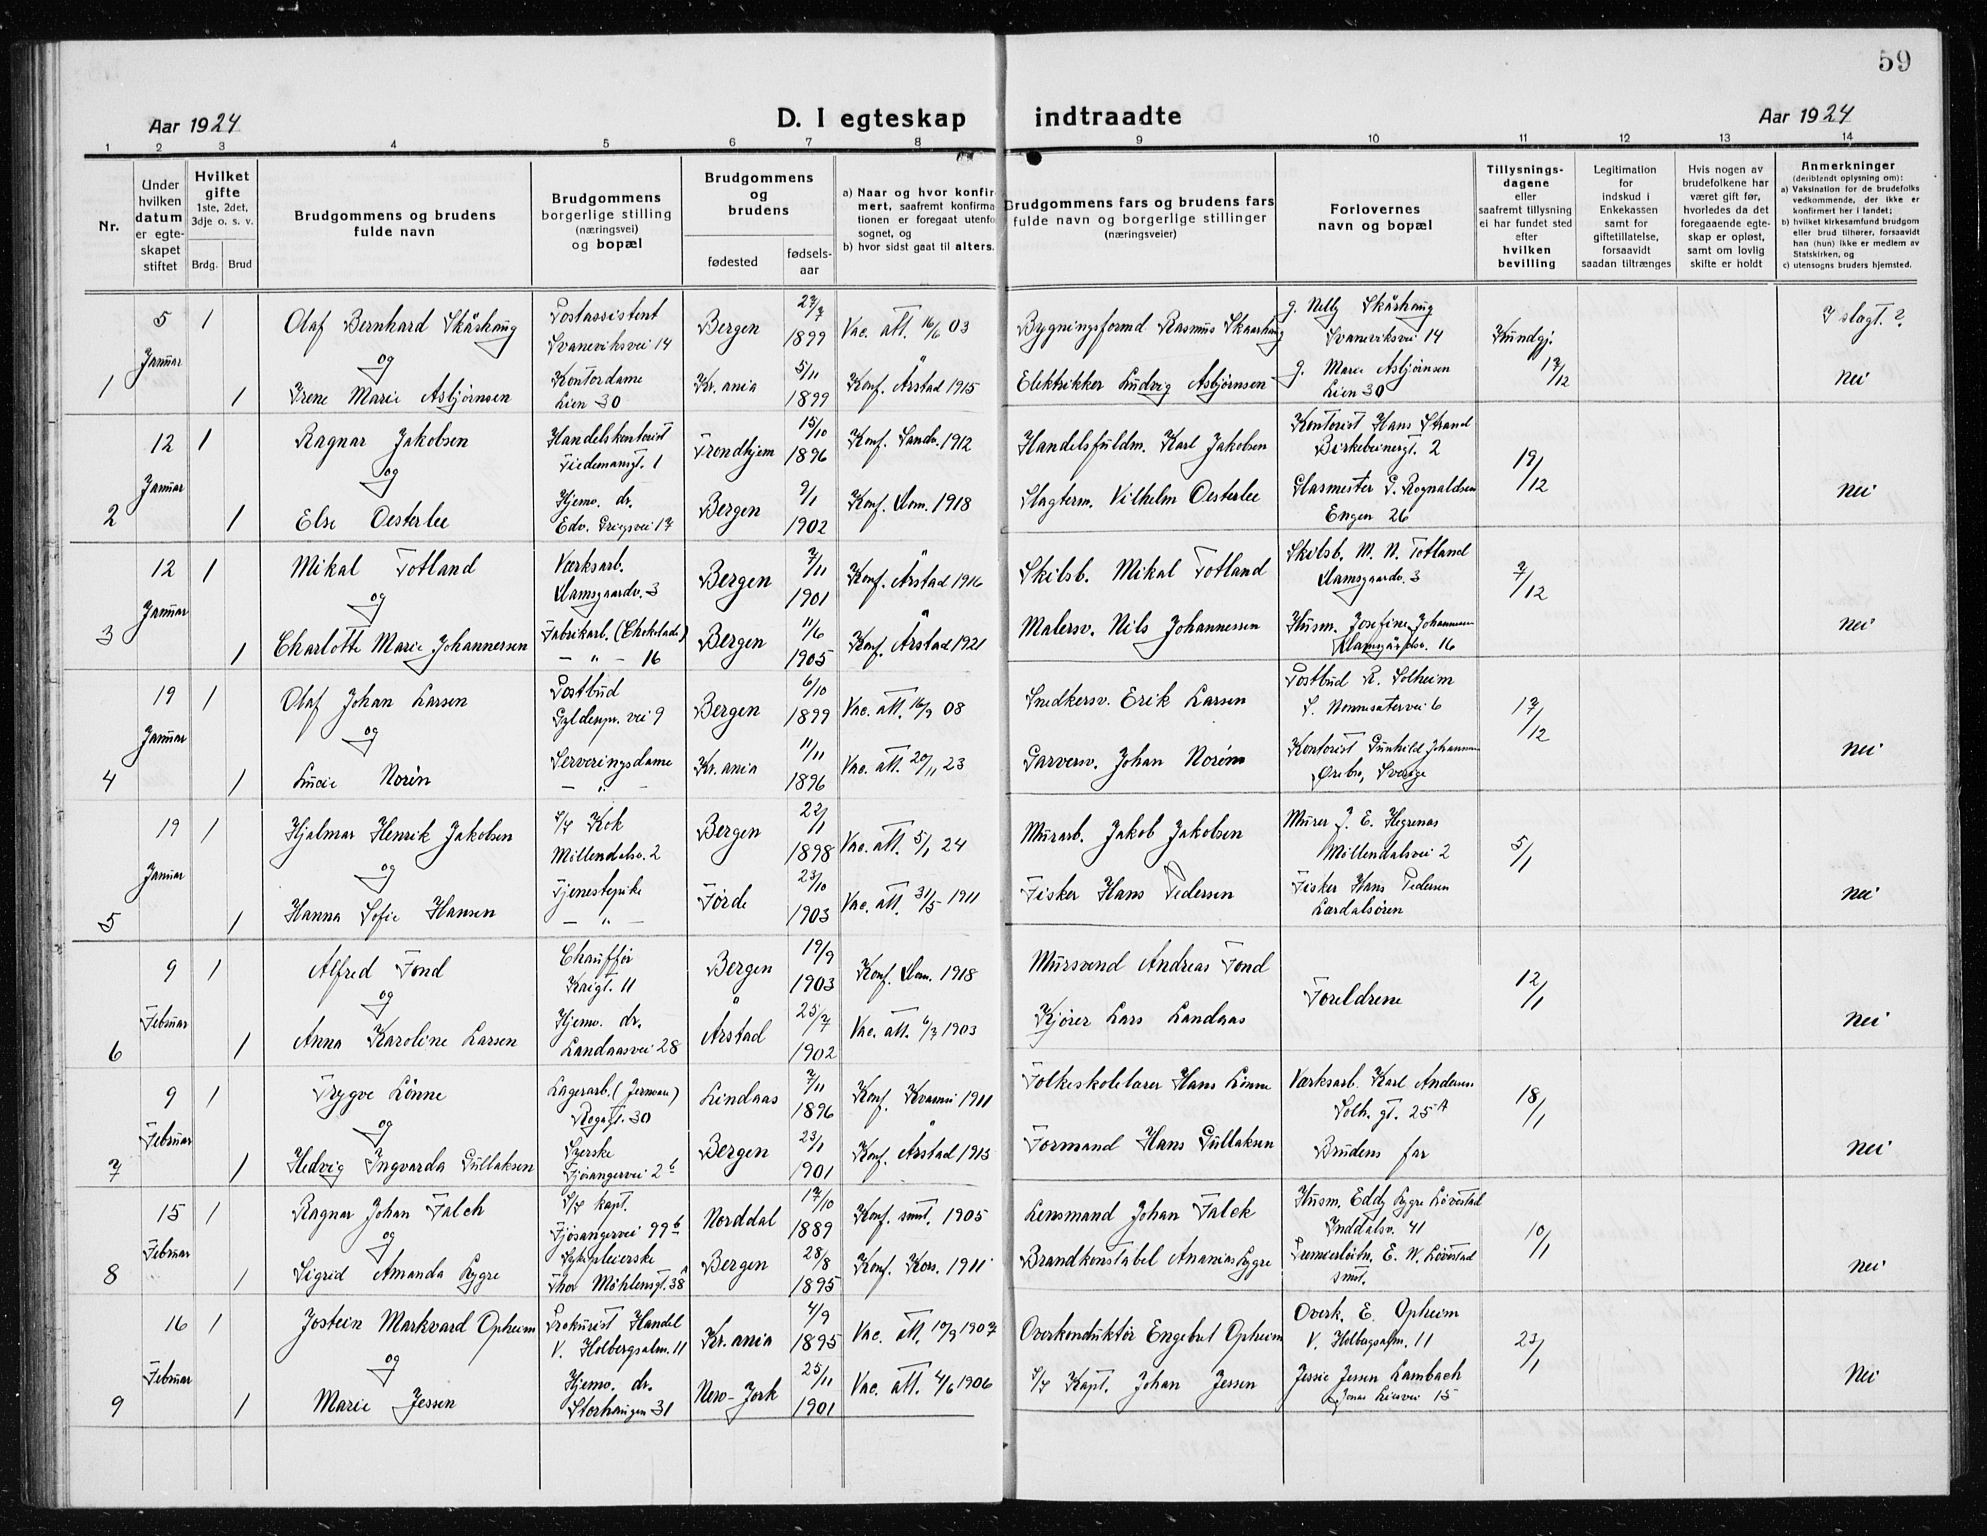 59
Aar 1924
D. I egteskap indtraadte
Aar 1924
1 2 3 4 5 6 7 8 9 10 11 12 13 14
Nr.
Under hvilken datum er egteskapet stiftet
Hvilket gifte 1ste, 2det, 3dje o. s. v.
Brdg. Brud
Brudgommens og brudens fulde navn
Brudgommens borgerlige stilling (næringsvei) og bopæl
Brudgommens og brudens
fødested
fødselsaar
a) Naar og hvor konfirmert, saafremt konfirmationen er foregaat utenfor sognet, og
b) hvor sidst gaat til alters.
Brudgommens fars og brudens fars fulde navn og borgerlige stillinger (næringsveier)
Forlovernes navn og bopæl
Tillysningsdagene eller saafremt tillysning ei har fundet sted efter hvilken bevilling
Legitimation for indskud i Enkekassen samt for giftetillatelse, forsaavidt saadan tiltrænges
Hvis nogen av brudefolkene har været gift før, hvorledes da det foregaaende egteskap er opløst, samt om lovlig skifte er holdt
Anmerkninger (deriblandt oplysning om):
a) Vaksination for de brudefolks vedkommende, der ikke er konfirmert her i landet;
b) hvilket kirkesamfund brudgom eller brud tilhører, forsaavidt han (hun) ikke er medlem av Statskirken, og
c) utensogns bruders hjemsted.
5 1 Olaf Bernhard Skårhaug Postassistent Svaneviksvei 14 Bergen 27/7 1899 Vac. att. 16/6 03 Bygningsformd Rasmus Skaarhaug g. Nelly Skårhaug Svaneviksvei 14 Kundgj. I slagt. ?
Januar og
1 1 Irene Marie Asbjørnsen Kontordame Lien 30 Kr.ania 5/11 1899 Konf. Årstad 1915 Elektrikker Ludvig Asbjørnsen g. Marie Asbjørnsen Lien 30 17/12 Nei
12 1 Ragnar Jakobsen Handelskontorist Tiedemansgt. 1 Trondhjem 15/10 1896 Konf. Sandv. 1912 Handelsfuldm. Karl Jakobsen Kontorist Hans Strand Birkebeinergt. 2 19/12
Januar og
2 1 Else Oesterlee Hjemv. dr. Edv. Griegsvei 17 Bergen 9/1 1902 Konf. Dom. 1918 Slagterm. Vilhelm Oesterlee Glasmester G. Rognaldsen Engen 26 Nei
12 1 Mikal Totland Værksarb. Damsgaardv. 3 Bergen 7/11 1901 Konf. Årstad 1916 Skibsb. Mikal Totland Skibsb. M. N. Totland Damsgaardv. 3 7/12
Januar og
3 1 Charlotte Marie Johannessen Fabrikarb. (Chokolade) — " — 16 Bergen 11/6 1905 Konf. Årstad 1921 Malersv. Nils Johannessen Husm. Josefine Johannessen Damsgårdsv. 16 Nei
19 1 Olaf Johan Larsen Postbud Gyldenpr. vei 9 Bergen 6/10 1899 Vac. att. 16/9 08 Snedkersv. Erik Larsen Postbud R. Solheim S. Nonnesætervei 6 17/12
Januar og
4 1 Lucie Norén Serveringsdame — " — Kr.ania 11/11 1896 Vac. att. 20/11 23 Garversv. Johan Norén Kontorist Gunhild Johannsen Ørebro, Sverige Nei
19 1 Hjalmar Henrik Jakobsen S/S Kok Møllendalsv. 2 Bergen 22/1 1898 Vac. att. 5/1 24 Murarb. Jakob Jakobsen Murer J. E. Hegrenæs Møllendalsvei 2 5/1
Januar og
5 1 Hanna Sofie Hansen Tjenestepike — " — Førde 23/10 1903 Vac. att. 31/5 1911 Fisker Hans Pedersen Fisker Hans Pedersen Lærdalsøren Nei
9 1 Alfred Fond Chauffør Kaigt. 11 Bergen 19/9 1903 Konf. Dom. 1918 Mursvend Andreas Fond Foreldrene 12/1
Februar og
6 1 Anna Karoline Larsen Hjemv. dr. Landaasvei 28 Årstad 25/7 1902 Vac. att. 6/7 1903 Kjører Lars Landaas Nei
9 1 Trygve Lønne Lagerarb. Rogagt. 30 Lindaas 7/11 1896 Konf. Kvamsi 1911 Folkeskolelærer Hans Lønne Værksarb. Karl Andersen Solh. gt. 25 A 18/1
Februar og
7 1 Hedvig Ingvarda Gullaksen Syerske Fjøsangervei 2 b Bergen 23/1 1901 Konf. Årstad 1915 Formand Hans Gullaksen Brudens far Nei
15 1 Ragnar Johan Falch S/S kapt. Fjøsangervei 99 b Norddal 17/10 1889 Konf. smst. 1905 Lensmand Johan Falck Husm. Eddy Lygre Løvestad Inddalsv. 41 10/1
Februar og
8 1 Sigrid Amanda Lygre Sykepleierske Thor Møhlensgt. 38 A Bergen 28/8 1895 Konf. Kors. 1911 Brandkonstabel Ananias Lygre Premierløitn. E. W. Løvestad smst. Nei
16 1 Jostein Markvard Opheim Prokurist Handel V. Holbergsalm. 11 Kr.ania 4/9 1895 Vac. att. 10/9 1907 Overkonduktør Engebret Opheim Overk. E. Opheim V. Holbergsalm. 11 23/1
Februar og
9 1 Marie Jessen Hjemv. dr. Storhaugen 31 New-York 25/11 1901 Vac. att. 4/6 1906 S/S Kapt. Johan Jessen Jessie Jessen Lambach Jonas Liesvei 15 Nei